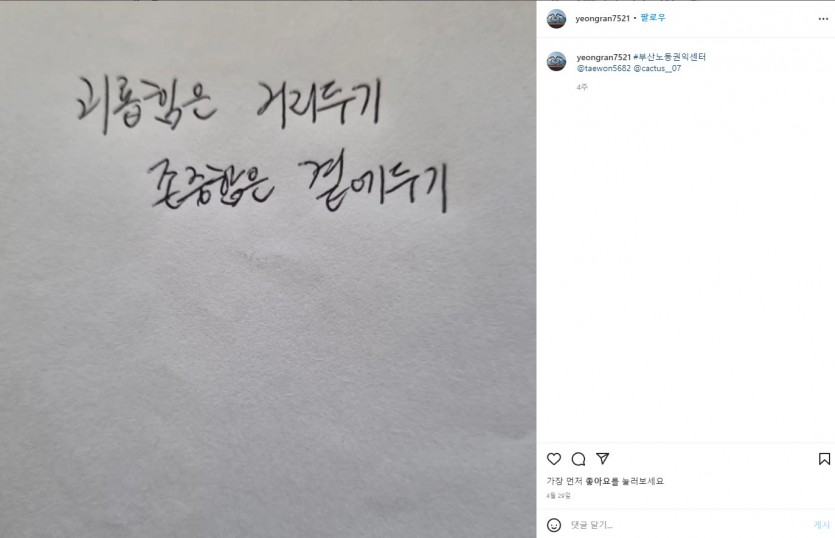 괴롭힘은 거리두기
존중함은 곁에두기
yeongran7521 • 팔로우
yeongran7521 #부산노동권익센터
@taewon5682 @cactus__07
4주
가장 먼저 좋아요를 눌러보세요
4월 29일
댓글 달기...
게시